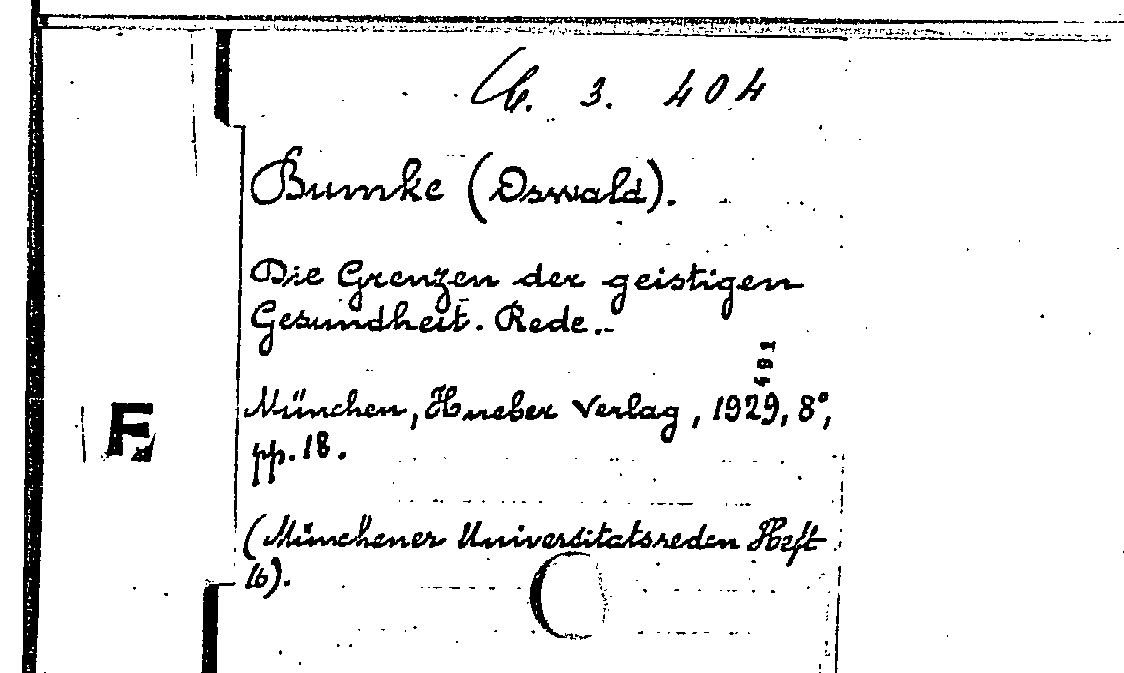 3. 404
Bumke (Oswald).
Die Grenzen der geistigen
Gesundheit. Rede..
491
München, Hueber Verlag, 1929, 8°,
pp. 18.
F
(Münchener Universitatsreden Heft
16).